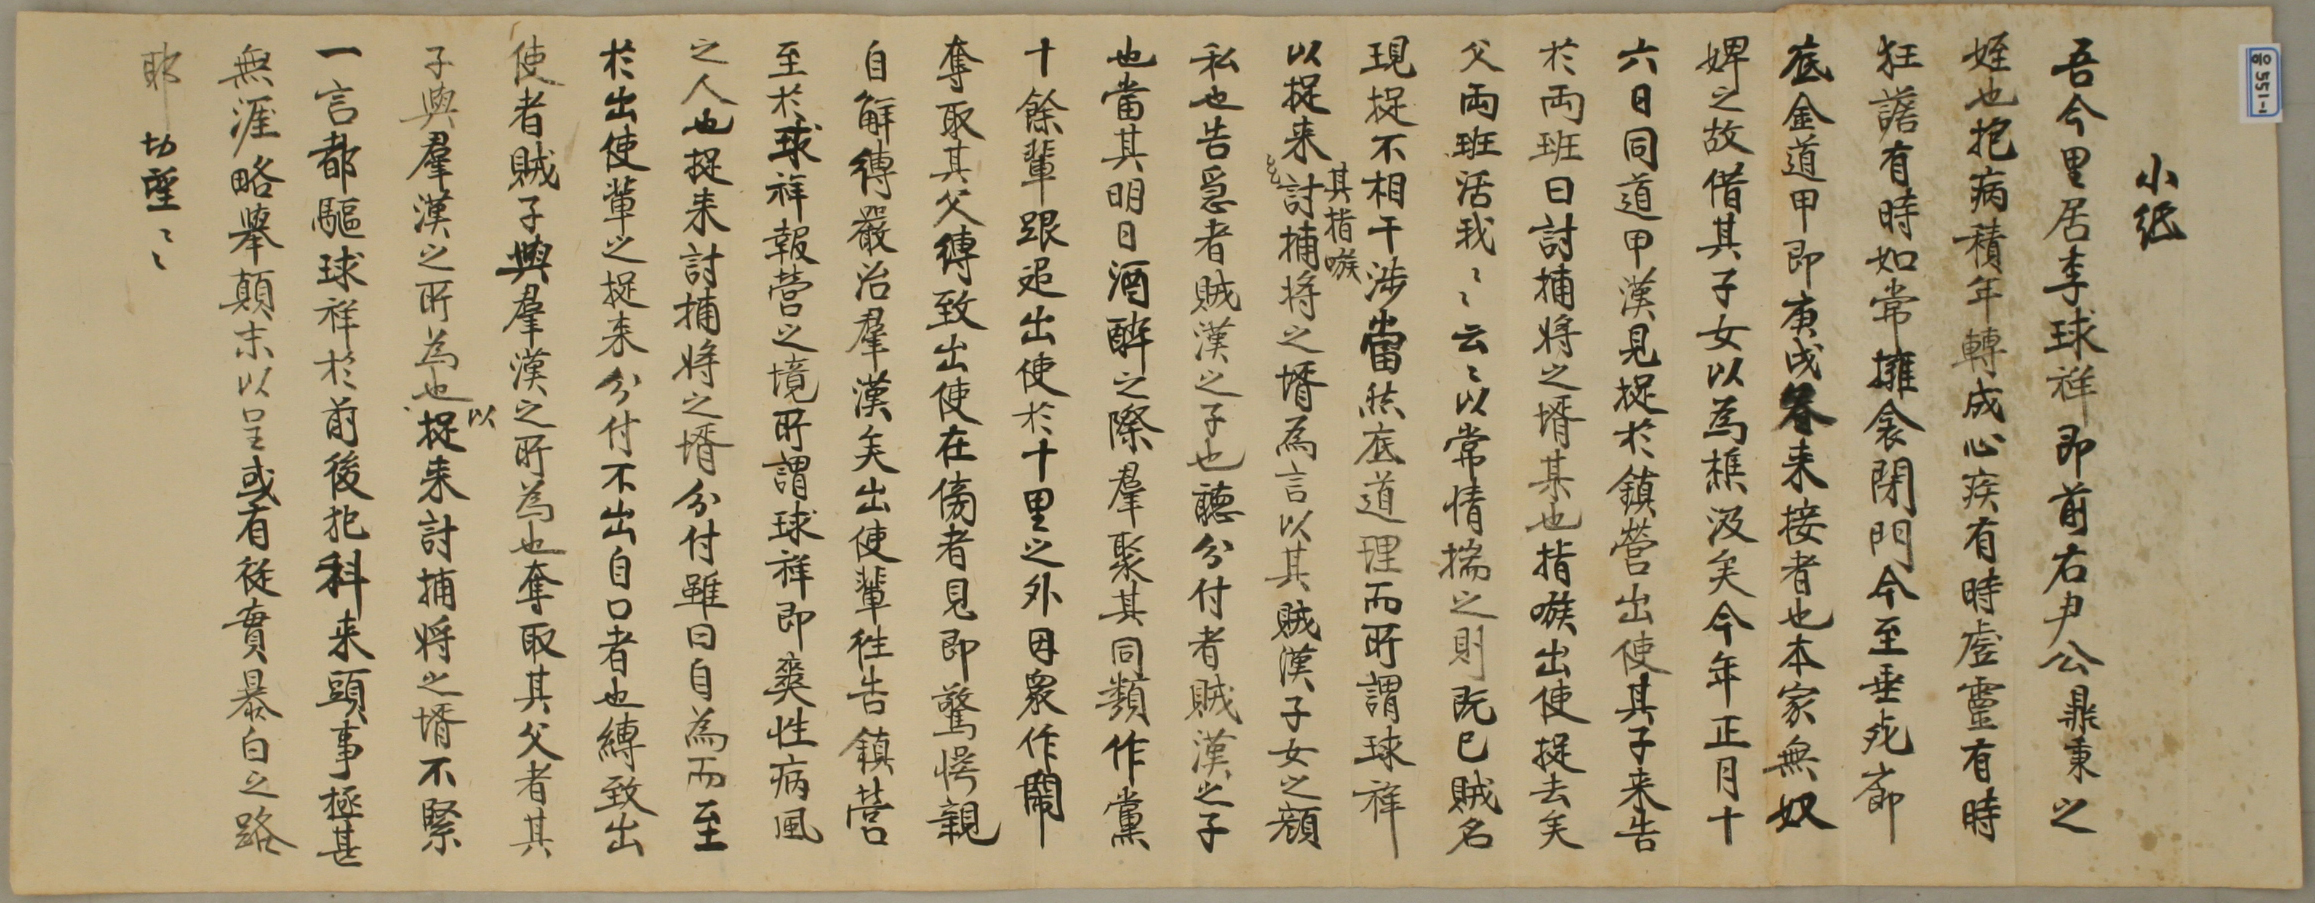 小紙
吾今里居李球祥即前右尹公鼎秉之
姪也抱病積年轉成心疾有時虛靈有時
狂譫有時如常擁衾閉門今至垂死廊
底金道甲即庚戌春来接者也本家無奴
婢之故借其子女以為樵汲矣今年正月十
六日同道甲漢見捉於鎮營出使其子来告
於両班曰討捕將之壻某也指嗾出使捉去矣
父両班活我〻〻云〻以常情揣之則既已賊名
現捉不相干涉當然底道理而所謂球祥
以捉来討捕將之壻為言以其賊漢子女之顔
其指嗾
私也告急者賊漢之子也聽分付者賊漢之子
也當其明日酒醉之際羣聚其同類作黨
十餘輩跟追出使於十里之外因衆作鬧
奪取其父縛致出使在傍者見即驚愕親
自解縛嚴治羣漢矣出使輩徃告鎮營
至於球祥報營之境所謂球祥即爽性病風
之人也捉来討捕將之壻分付雖曰自為而至
於出使輩之捉来分付不出自口者也縛致出
使者賊子與羣漢之所為也奪取其父者其
子與羣漢之所為也以捉来討捕將之壻不緊
一言都驅球祥於前後犯科来頭事極甚
無涯略擧顛末以呈或有從實暴白之路
耶 切望〻〻
윤551-1